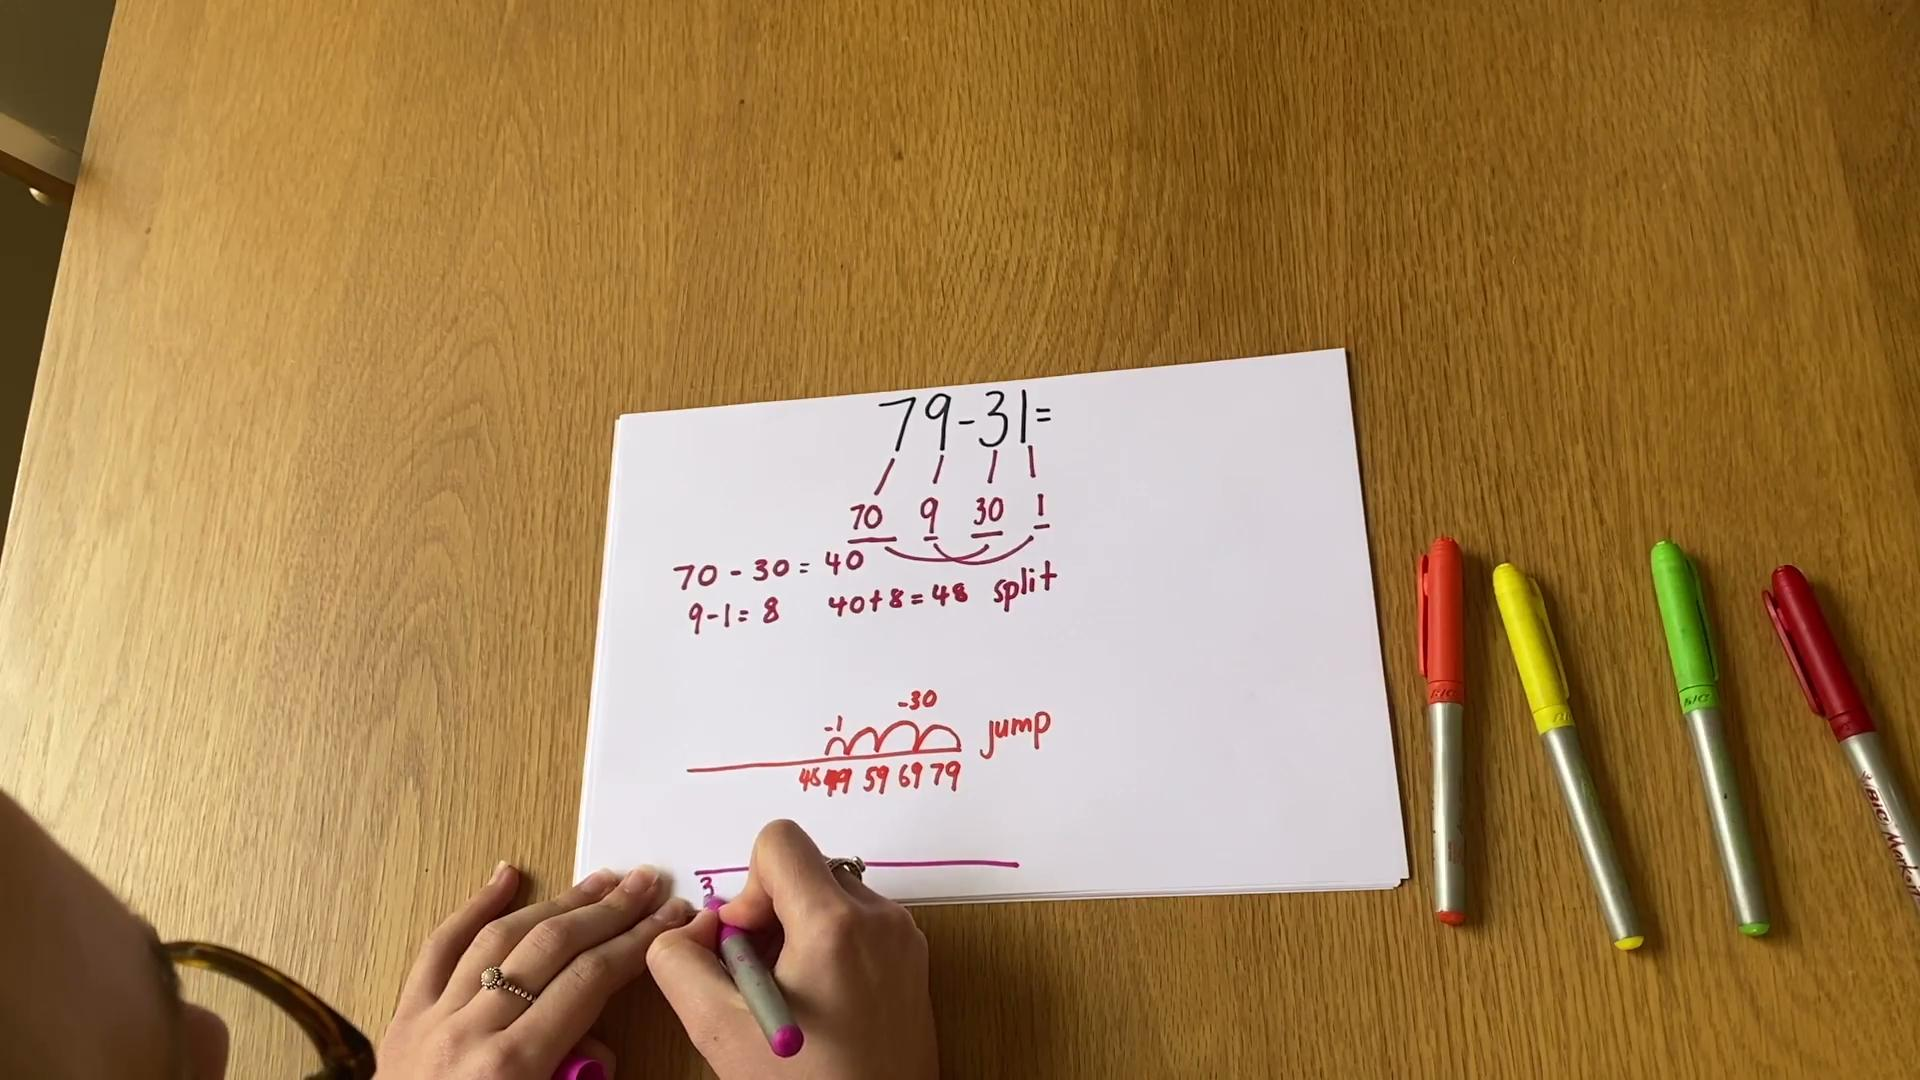 79-31=
70 9 30 1
70 - 30 = 40
9-1= 8 40+8=48 split
-30
-1
jump
48 49 59 69 79
3
BIC
BIC
BIC